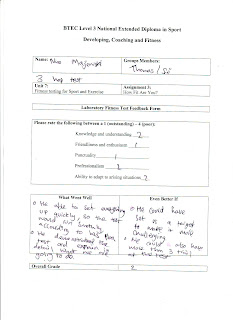 BTEC Level 3 National Extended Diploma in Sport
Developing, Coaching and Fitness
Name:
Groups Members:
3 hop test
Thomas /
Unit 7:
Fitness testing for Sport and Exercise
Assignment 3:
How Fit Are You?
Laboratory Fitness Test Feedback Form
Please rate the following between a 1 (outstanding) – 4 (poor):
Knowledge and understanding 2
Friendliness and enthusiasm 1
Punctuality 1
Professionalism 2
Ability to adapt to arising situations 2
What Went Well
Even Better If
He able to set everything
up quickly, so the test
would run smoothly
according to
He demonstrated the
test and explain in
details what we are
going to do.
He could have
set a target
to make it more
challenging
He could also have
more than 3 trial
at the test
Overall Grade
2